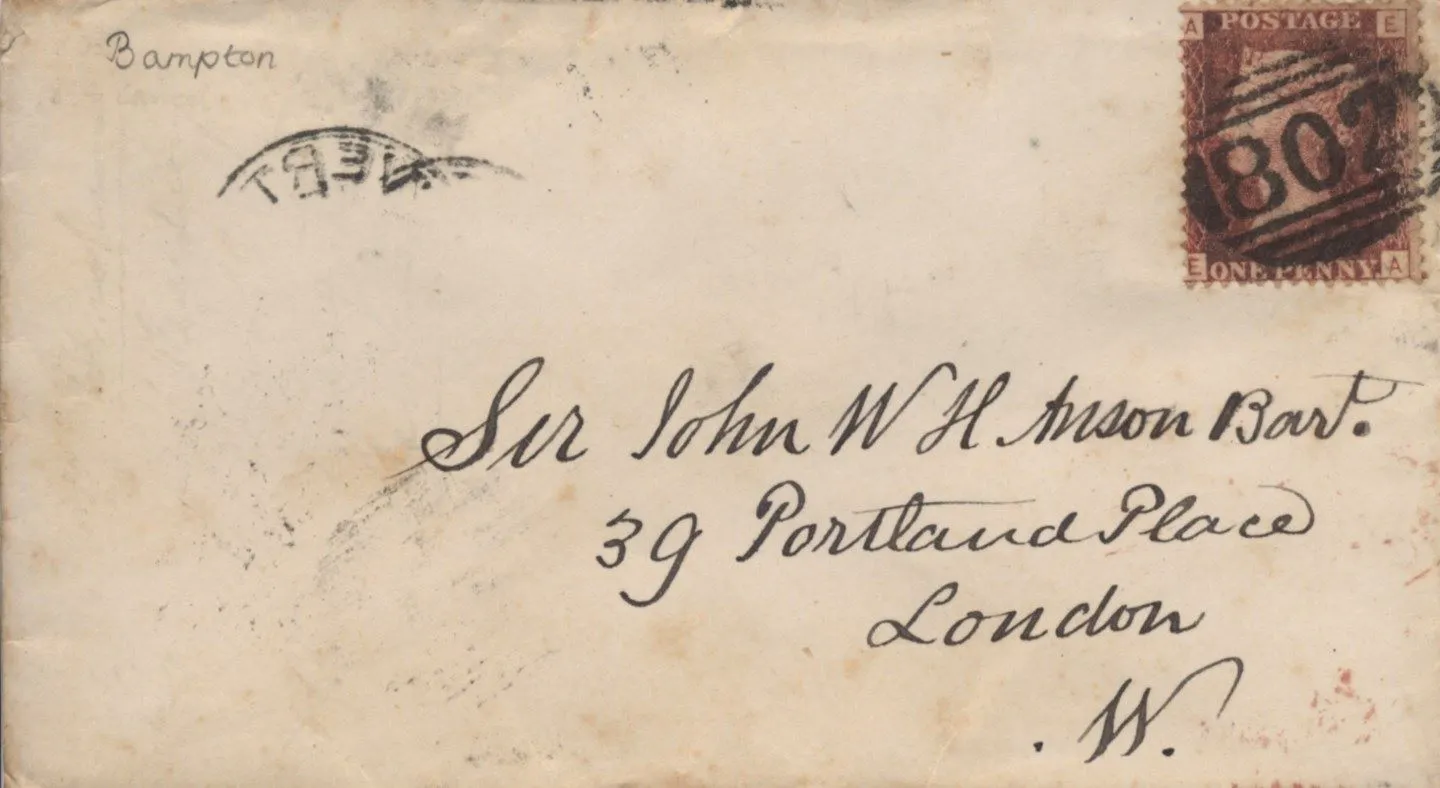 Bampton
A POSTAGE E
802
E ONE PENNY A
Sir John W H Anson Bart.
39 Portland Place
London
W.